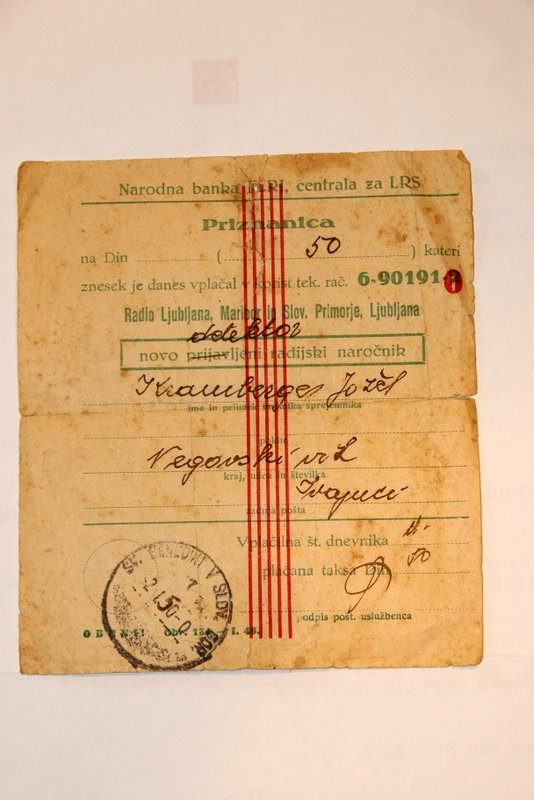 Narodna banka FLRJ, centrala za LRS
Priznanica
na Din ( 50 ) kateri
znesek je danes vplačal v korist tek. rač. 6-90191-
Radio Ljubljana, Maribor in Slov. Primorje, Ljubljana
detektor
novo prijavljeni radijski naročnik
Kramberger Jožef
ime in priimek imetnika sprejemnika
poklic
Negovski vrh
kraj, ulica in številka
Ivajnci
zadnja pošta
Vplačilna št. dnevnika
plačana taksa Din 50
podpis post. uslužbenca
SV. BENEDIKT V SLOV. GOR.
OBENEM Obr. I. 48.